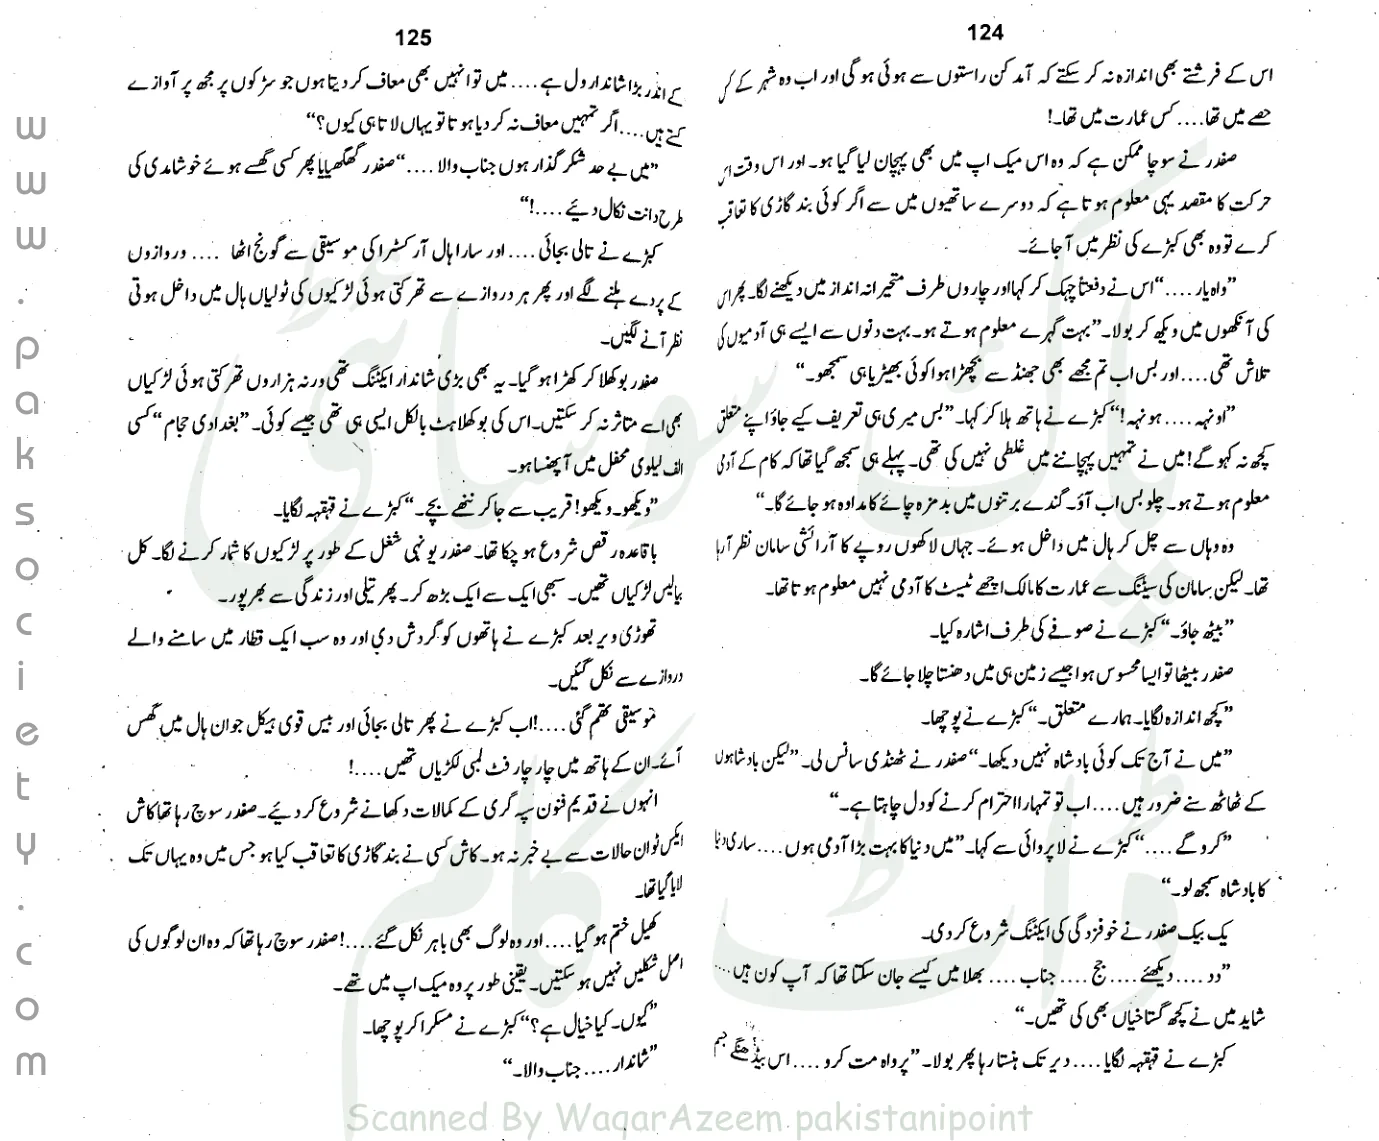 124
اس کے فرشتے بھی اندازہ نہ کر سکتے کہ آمد کن راستوں سے ہوئی ہوگی اور اب وہ شہر کے کس
حصے میں تھا.... کس عمارت میں تھا۔!
صفدر نے سوچا ممکن ہے کہ وہ اس میک اپ میں بھی پہچان لیا گیا ہو۔ اور اس وقت اس
حرکت کا مقصد یہی معلوم ہوتا ہے کہ دوسرے ساتھیوں میں سے اگر کوئی بند گاڑی کا تعاقب
کرے تو وہ بھی کبڑے کی نظر میں آ جائے۔
”واہ یار....“ اس نے دفعتاً چہک کر کہا اور چاروں طرف متحیرانہ انداز میں دیکھنے لگا۔ پھر اس
کی آنکھوں میں دیکھ کر بولا۔ ”بہت گہرے معلوم ہوتے ہو۔ بہت دنوں سے ایسے ہی آدمیوں کی
تلاش تھی.... اور بس اب تم مجھے بھی جھنڈ سے بچھڑا ہوا کوئی بھیڑیا ہی سمجھو۔“
”اونہہ.... ہونہہ!“ کبڑے نے ہاتھ ہلا کر کہا۔ ”بس میری ہی تعریف کیے جاؤ اپنے متعلق
کچھ نہ کہو گے! میں نے تمہیں پہچاننے میں غلطی نہیں کی تھی۔ پہلے ہی سمجھ گیا تھا کہ کام کے آدمی
معلوم ہوتے ہو۔ چلو بس اب آؤ۔ گندے برتنوں میں بدمزہ چائے کا مداوہ ہو جائے گا۔“
وہ وہاں سے چل کر ہال میں داخل ہوئے۔ جہاں لاکھوں روپے کا آرائشی سامان نظر آرہا
تھا۔ لیکن سامان کی سیٹنگ سے عمارت کا مالک اچھے ٹیسٹ کا آدمی نہیں معلوم ہوتا تھا۔
”بیٹھ جاؤ۔“ کبڑے نے صوفے کی طرف اشارہ کیا۔
صفدر بیٹھا تو ایسا محسوس ہوا جیسے زمین ہی میں دھنستا چلا جائے گا۔
”کچھ اندازہ لگایا۔ ہمارے متعلق۔“ کبڑے نے پوچھا۔
”میں نے آج تک کوئی بادشاہ نہیں دیکھا۔“ صفدر نے ٹھنڈی سانس لی۔ ”لیکن بادشاہوں
کے ٹھاٹھ سنے ضرور ہیں.... اب تو تمہارا احترام کرنے کو دل چاہتا ہے۔“
”کرو گے....“ کبڑے نے لاپروائی سے کہا۔ ”میں دنیا کا بہت بڑا آدمی ہوں.... ساری دنیا
کا بادشاہ سمجھ لو۔“
یک بیک صفدر نے خوفزدگی کی ایکٹنگ شروع کر دی۔
”دد.... دیکھئے.... جج.... جناب.... بھلا میں کیسے جان سکتا تھا کہ آپ کون ہیں....
شاید میں نے کچھ گستاخیاں بھی کی تھیں۔“
کبڑے نے قہقہہ لگایا.... دیر تک ہنستا رہا پھر بولا۔ ”پرواہ مت کرو.... اس بیڈھنگے جسم
125
کے اندر بڑا شاندار دل ہے.... میں تو انہیں بھی معاف کر دیتا ہوں جو سڑکوں پر مجھ پر آوازے
کستے ہیں.... اگر تمہیں معاف نہ کر دیا ہوتا تو یہاں لاتا ہی کیوں؟“
”میں بے حد شکر گذار ہوں جناب والا....“ صفدر گھگھیایا پھر کسی گھسے ہوئے خوشامدی کی
طرح دانت نکال دیئے....!“
کبڑے نے تالی بجائی.... اور سارا ہال آرکسٹرا کی موسیقی سے گونج اٹھا .... دروازوں
کے پردے ہلنے لگے اور پھر ہر دروازے سے تھرکتی ہوئی لڑکیوں کی ٹولیاں ہال میں داخل ہوتی
نظر آنے لگیں۔
صفدر بوکھلا کر کھڑا ہو گیا۔ یہ بھی بڑی شاندار ایکٹنگ تھی ورنہ ہزاروں تھرکتی ہوئی لڑکیاں
بھی اسے متاثر نہ کر سکتیں۔ اس کی بوکھلاہٹ بالکل ایسی ہی تھی جیسے کوئی۔ ”بغدادی حجام“ کسی
الف لیلوی محفل میں آ پھنسا ہو۔
”دیکھو۔ دیکھو! قریب سے جا کر ننھے بچے۔“ کبڑے نے قہقہہ لگایا۔
باقاعدہ رقص شروع ہو چکا تھا۔ صفدر یونہی شغل کے طور پر لڑکیوں کا شمار کرنے لگا۔ کل
بیالیس لڑکیاں تھیں۔ سبھی ایک سے ایک بڑھ کر۔ پھرتیلی اور زندگی سے بھرپور۔
تھوڑی دیر بعد کبڑے نے ہاتھوں کو گردش دی اور وہ سب ایک قطار میں سامنے والے
دروازے سے نکل گئیں۔
موسیقی تھم گئی....! اب کبڑے نے پھر تالی بجائی اور بیس قوی ہیکل جوان ہال میں گھس
آئے۔ ان کے ہاتھ میں چار چار فٹ لمبی لکڑیاں تھیں....!
انہوں نے قدیم فنون سپہ گری کے کمالات دکھانے شروع کر دیئے۔ صفدر سوچ رہا تھا کاش
ایکس ٹو ان حالات سے بے خبر نہ ہو۔ کاش کسی نے بند گاڑی کا تعاقب کیا ہو جس میں وہ یہاں تک
لایا گیا تھا۔
کھیل ختم ہو گیا.... اور وہ لوگ بھی باہر نکل گئے....! صفدر سوچ رہا تھا کہ وہ ان لوگوں کی
اصل شکلیں نہیں ہو سکتیں۔ یقینی طور پر وہ میک اپ میں تھے۔
”کیوں۔ کیا خیال ہے؟“ کبڑے نے مسکرا کر پوچھا۔
”شاندار.... جناب والا۔“
www.paksociety.com
پاک سوسائٹی
ڈاٹ کام
Scanned By WaqarAzeem pakistanipoint